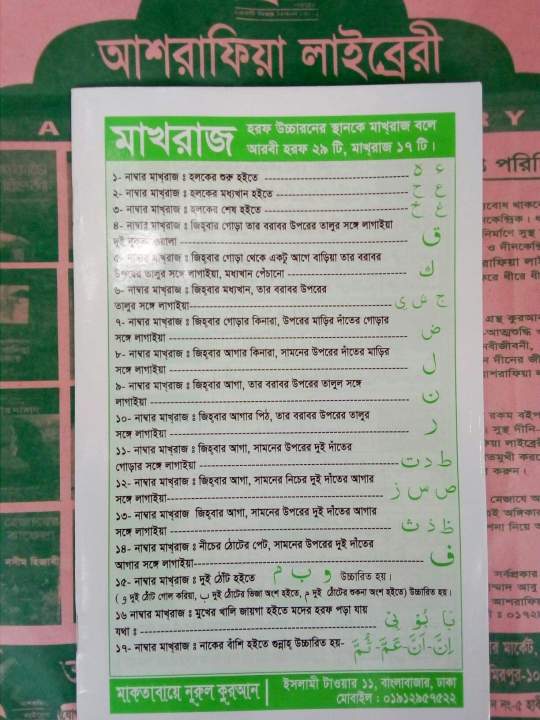 আশরাফিয়া লাইব্রেরী
A
R Y
মাখরাজ
হরফ উচ্চারনের স্থানকে মাখ্‌রাজ বলে
আরবী হরফ ২৯ টি, মাখ্‌রাজ ১৭ টি।
১- নাম্বার মাখ্‌রাজ ঃ হলকের শুরু হইতে ء ه
২- নাম্বার মাখ্‌রাজ ঃ হলকের মধ্যখান হইতে ع ح
৩- নাম্বার মাখ্‌রাজ ঃ হলকের শেষ হইতে غ خ
৪- নাম্বার মাখ্‌রাজ ঃ জিহ্‌বার গোড়া তার বরাবর উপরের তালুর সঙ্গে লাগাইয়া
দুই নুকতা ওয়ালা ق
৫- নাম্বার মাখ্‌রাজ ঃ জিহ্‌বার গোড়া থেকে একটু আগে বাড়িয়া তার বরাবর
উপরের তালুর সঙ্গে লাগাইয়া, মধ্যখান পেঁচানো ك
৬- নাম্বার মাখ্‌রাজ ঃ জিহ্‌বার মধ্যখান, তার বরাবর উপরের
তালুর সঙ্গে লাগাইয়া ج ش ى
৭- নাম্বার মাখ্‌রাজ ঃ জিহ্‌বার গোড়ার কিনারা, উপরের মাড়ির দাঁতের গোড়ার
সঙ্গে লাগাইয়া ض
৮- নাম্বার মাখ্‌রাজ ঃ জিহ্‌বার আগার কিনারা, সামনের উপরের দাঁতের মাড়ির
সঙ্গে লাগাইয়া ل
৯- নাম্বার মাখ্‌রাজ ঃ জিহ্‌বার আগা, তার বরাবর উপরের তালুল সঙ্গে
লাগাইয়া ن
১০- নাম্বার মাখ্‌রাজ ঃ জিহ্‌বার আগার পিঠ, তার বরাবর উপরের তালুর
সঙ্গে লাগাইয়া ر
১১- নাম্বার মাখ্‌রাজ ঃ জিহ্‌বার আগা, সামনের উপরের দুই দাঁতের
গোড়ার সঙ্গে লাগাইয়া ط د ت
১২- নাম্বার মাখ্‌রাজ ঃ জিহ্‌বার আগা, সামনের নিচের দুই দাঁতের আগার
সঙ্গে লাগাইয়া ص س ز
১৩- নাম্বার মাখ্‌রাজ জিহ্‌বার আগা, সামনের উপরের দুই দাঁতের আগার
সঙ্গে লাগাইয়া ظ ذ ث
১৪- নাম্বার মাখ্‌রাজ ঃ নীচের ঠোটের পেট, সামনের উপরের দুই দাঁতের
আগার সঙ্গে লাগাইয়া ف
১৫- নাম্বার মাখ্‌রাজ ঃ দুই ঠোঁট হইতে و ب م উচ্চারিত হয়।
( و দুই ঠোঁট গোল করিয়া, ب দুই ঠোঁটের ভিজা অংশ হইতে, م দুই ঠোঁটের শুকনা অংশ হইতে) উচ্চারিত হয়।
১৬ নাম্বার মাখ্‌রাজ ঃ মুখের খালি জায়গা হইতে মদের হরফ পড়া যায়
যথা ঃ بَا بُوْ بِيْ
১৭- নাম্বার মাখ্‌রাজ ঃ নাকের বাঁশি হইতে গুন্নাহ্‌ উচ্চারিত হয়- اِنَّ-اَنَّ-عَمَّ-ثُمَّ
মাকতাবায়ে নুরুল কুরআন
ইসলামী টাওয়ার ১১, বাংলাবাজার, ঢাকা
মোবাইল : ০১৯১২৯৫৭৫২২